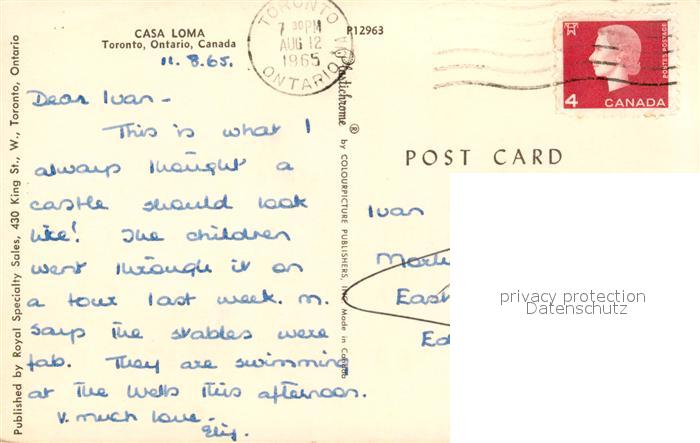 CASA LOMA
Toronto, Ontario, Canada
11.8.65.
Dear Ivan -
This is what I
always thought a
castle should look
like! The children
went through it on
a tour last week. M.
says the stables were
fab. They are swimming
at the Wells this afternoon.
V. much love -
TORONTO
7 30 PM
AUG 12
1965
ONTARIO
P12963
4 CANADA
POSTES POSTAGE
POST CARD
Ivan
East
Ed
privacy protection
Datenschutz
Published by Royal Specialty Sales, 430 King St., W., Toronto, Ontario
Plastichrome ® by COLOURPICTURE PUBLISHERS, INC. Made in Canada